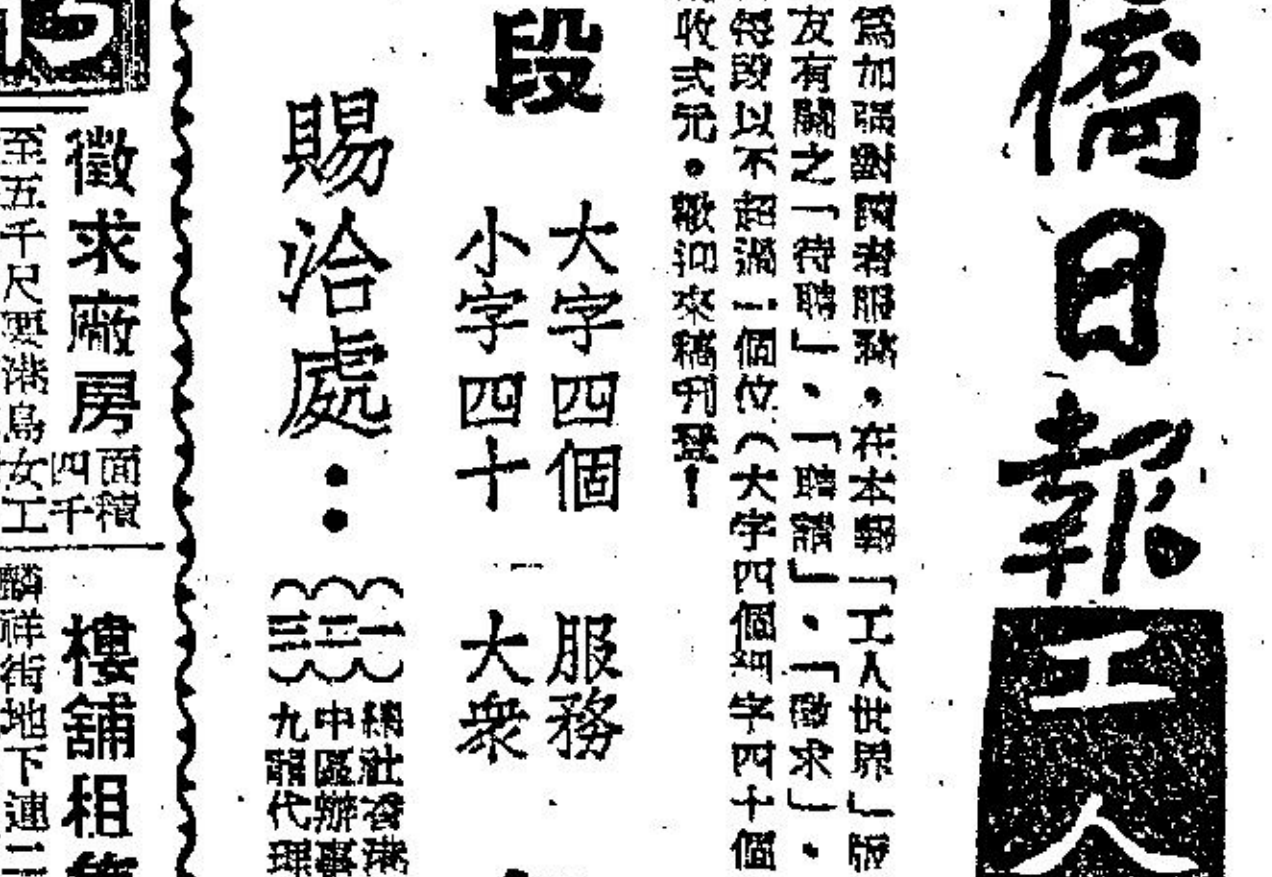 僑日報
工人
為加強對閱者服務。在本報「工人世界」版
友有關之「待聘」、「聘請」、「徵求」、
每段以不超過一個位（大字四個細字四十個
收弍元。歡迎來稿刊登！
段
大字四個
小字四十
服務
大衆
賜洽處：
（一）總社香港
（二）中區辦事
（三）九龍代理
徵求廠房
面積
四千
至五千尺要港島女工
樓舖租售
麟祥街地下連二